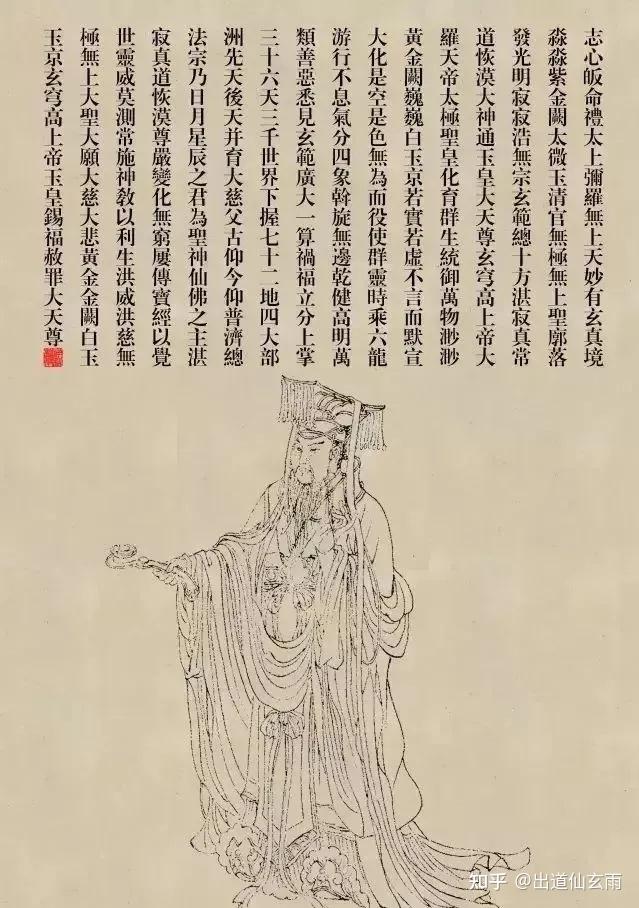 志心皈命禮太上彌羅無上天妙有玄真境
淼淼紫金闕太微玉清宮無極無上聖廓落
發光明寂寂浩無宗玄範總十方湛寂真常
道恢漠大神通玉皇大天尊玄穹高上帝大
羅天帝太極聖皇化育群生統御萬物渺渺
黃金闕巍巍白玉京若實若虛不言而默宣
大化是空是色無為而役使群靈時乘六龍
游行不息氣分四象斡旋無邊乾健高明萬
類善惡悉見玄範廣大一算禍福立分上掌
三十六天三千世界下握七十二地四大部
洲先天後天并育大慈父古仰今仰普濟總
法宗乃日月星辰之君為聖神仙佛之主湛
寂真道恢漠尊嚴變化無窮屢傳寶經以覺
世靈威莫測常施神教以利生洪威洪慈無
極無上大聖大願大慈大悲黃金金闕白玉
玉京玄穹高上帝玉皇錫福赦罪大天尊
知乎 @出道仙玄雨